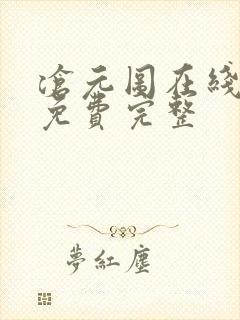 滄元圖在綫
免費完整
夢紅塵